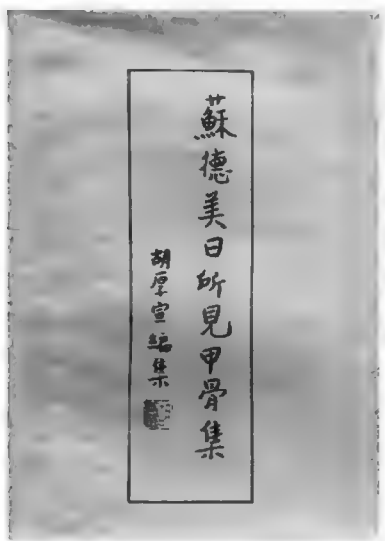 蘇德美日所見甲骨集
胡厚宣編集